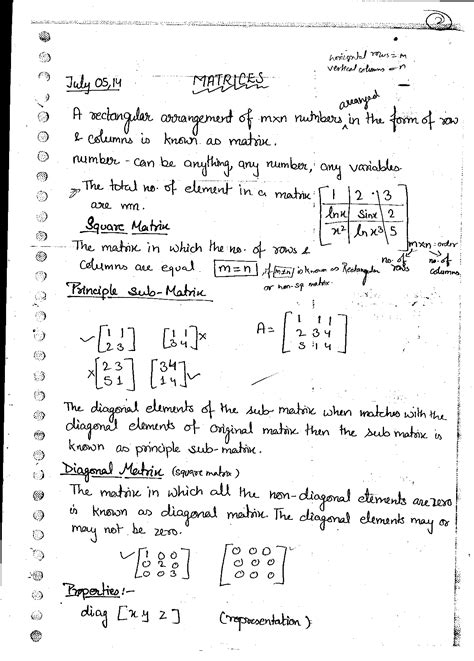 2
horizontal rows = m
vertical columns = n
July 05, 14
MATRICES
A rectangular arrangement of m×n numbers arranged in the form of row
& columns is known as matrix.
number - can be anything, any number, any variables
The total no. of element in a matrix
are mn.
[1 2 3
ln x sin x 2
x² ln x³ 5]
m×n : order
no. of rows no. of columns
Square Matrix
The matrix in which the no. of rows &
columns are equal m=n, if m≠n is known as Rectangular
or non-sq matrix.
Principle Sub-Matrix
✓[1 1
2 3]
[1 1
3 4]×
A = [1 1 1
2 3 4
5 1 4]
×[2 3
5 1]
[3 4
1 4]✓
The diagonal elements of the sub-matrix when matches with the
diagonal elements of original matrix then the sub matrix is
known as principle sub-matrix.
Diagonal Matrix (square matrix)
The matrix in which all the non-diagonal elements are zero
is known as diagonal matrix. The diagonal elements may or
may not be zero.
✓[1 0 0
0 2 0
0 0 3]
[0 0 0
0 0 0
0 0 0]
Properties:-
diag [x y z] (representation)